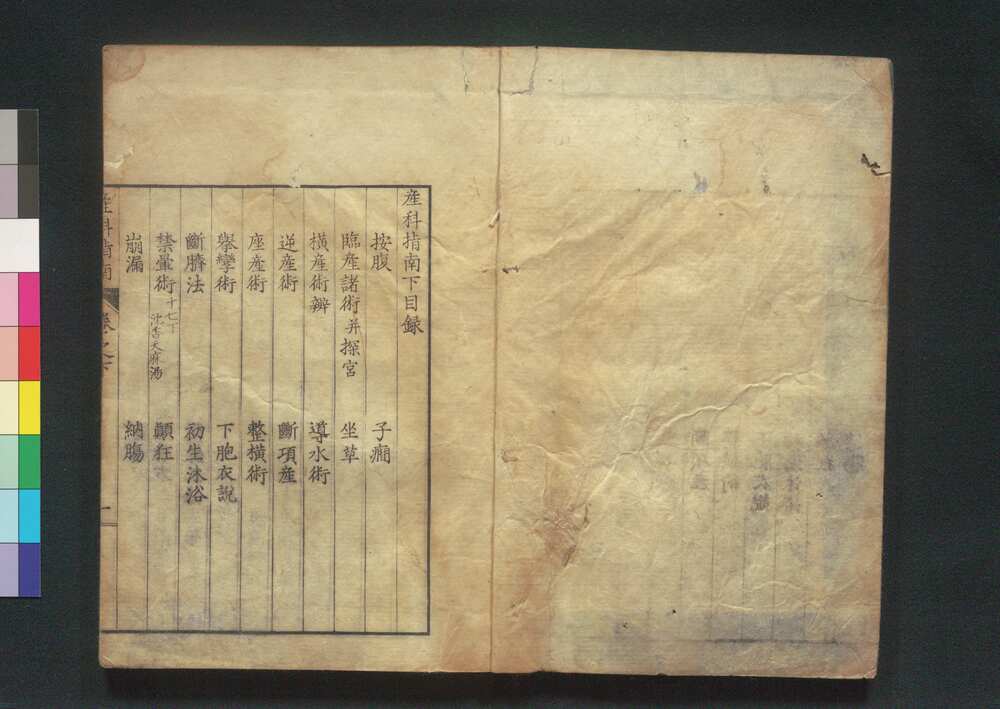 産科指南下目録
按腹 子癇
臨産諸術并探宮 坐草
横産術辨 導水術
逆産術 斷項産
座産術 整横術
擧攣術 下胞衣說
斷臍法 初生沐浴
禁暈術 十七丁 沈香天麻湯 顚狂
崩漏 納膓
産科指南 卷之下 一